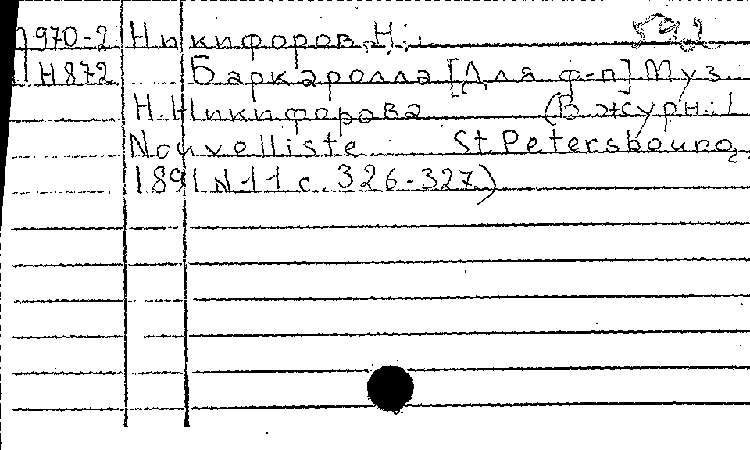 1970-2 Никифоров, Н. 592
Н872 Баркаролла [Для ф-п] Муз.
Н. Никифорова (В журн.:
Nouvelliste St Petersbourg,
1891 N 11 с. 326-327)